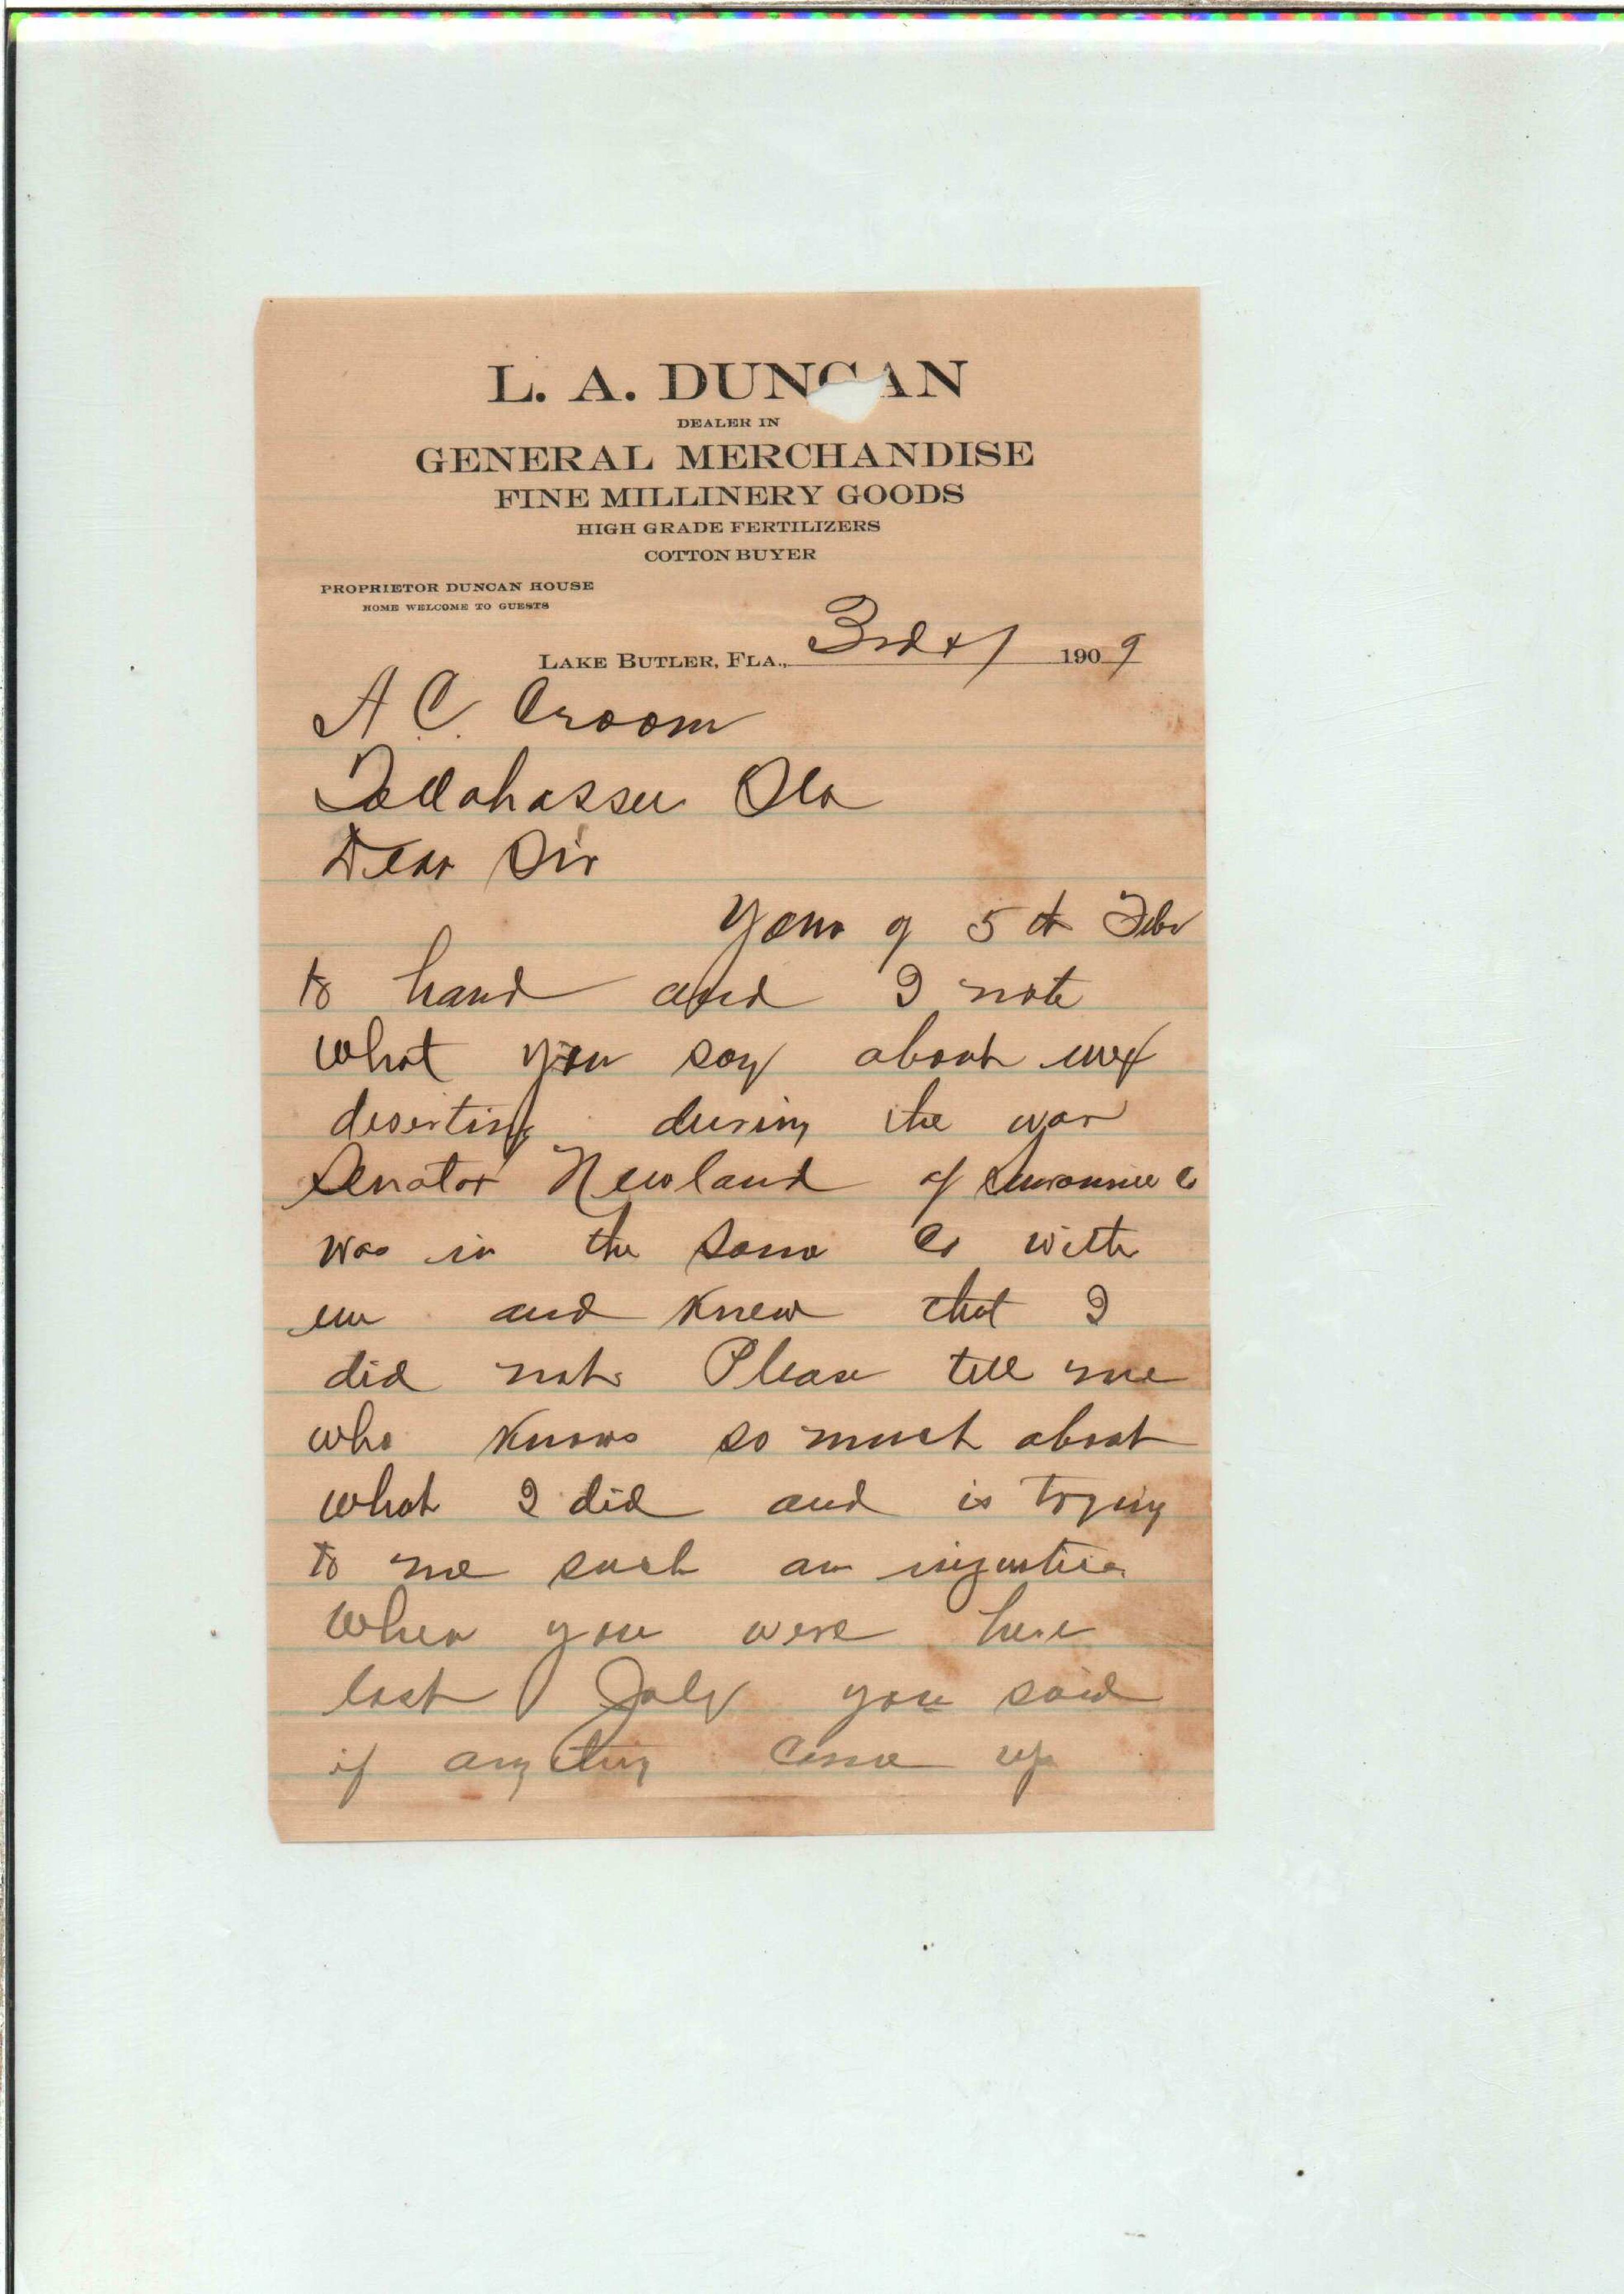 L. A. DUNCAN
DEALER IN
GENERAL MERCHANDISE
FINE MILLINERY GOODS
HIGH GRADE FERTILIZERS
COTTON BUYER
PROPRIETOR DUNCAN HOUSE
HOME WELCOME TO GUESTS
LAKE BUTLER, FLA., 1909
A C. Croom
Tallahassee Fla
Dear Sir
Your of 5th Feb
to hand and I note
what you say about
deserting during the war
Senator Newland of Suwannee Co
was in the same Co with
me and knew that I
did not Please tell me
who knows so much about
what I did and is trying
to me such an injustice
When you were here
last July you said
if anything come up